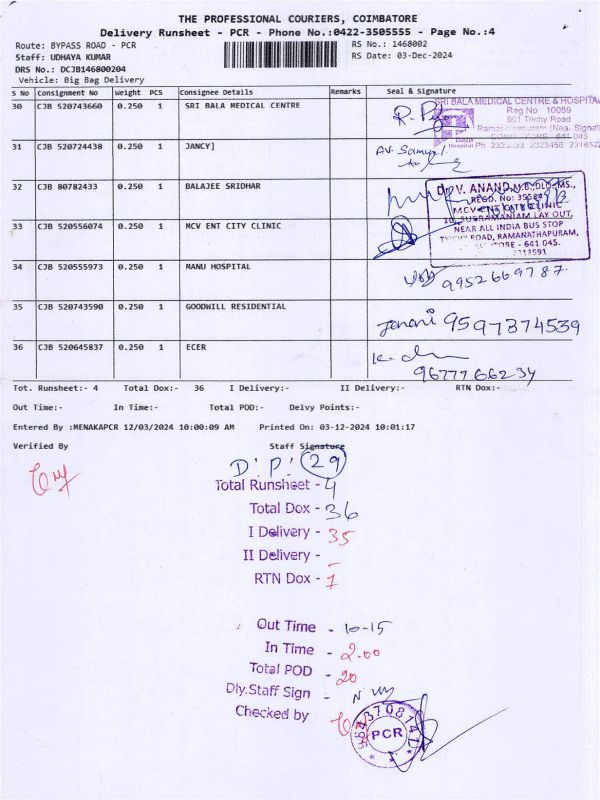 THE PROFESSIONAL COURIERS, COIMBATORE
Delivery Runsheet - PCR - Phone No.:0422-3505555 - Page No.:4
Route: BYPASS ROAD - PCR
RS No.: 1468002
Staff: UDHAYA KUMAR
RS Date: 03-Dec-2024
DRS No.: DCJB146800204
Vehicle: Big Bag Delivery
S No Consignment No Weight PCS Consignee Details Remarks Seal & Signature
30 CJB 520743660 0.250 1 SRI BALA MEDICAL CENTRE
SRI BALA MEDICAL CENTRE & HOSPITAL
Reg No 10089
901 Trichy Road
31 CJB 520724438 0.250 1 JANCY]
32 CJB 80782433 0.250 1 BALAJEE SRIDHAR
Dr. V. ANAND, M.B., DLO., MS.,
MCV ENT CITY CLINIC
10, SUBRAMANIAM LAY OUT,
NEAR ALL INDIA BUS STOP
TRICHY ROAD, RAMANATHAPURAM,
- 641 045.
33 CJB 520556074 0.250 1 MCV ENT CITY CLINIC
34 CJB 520555973 0.250 1 MANU HOSPITAL
9952669787
35 CJB 520743590 0.250 1 GOODWILL RESIDENTIAL
Janani 9597374539
36 CJB 520645837 0.250 1 ECER
9677766234
Tot. Runsheet:- 4 Total Dox:- 36 I Delivery:- II Delivery:- RTN Dox:-
Out Time:- In Time:- Total POD:- Delvy Points:-
Entered By :MENAKAPCR 12/03/2024 10:00:09 AM Printed On: 03-12-2024 10:01:17
Verified By Staff Signature
D.P. 29
Total Runsheet - 4
Total Dox - 36
I Delivery - 35
II Delivery - -
RTN Dox - 1
Out Time - 10-15
In Time - 2.00
Total POD - 20
Dly.Staff Sign -
Checked by
PCR